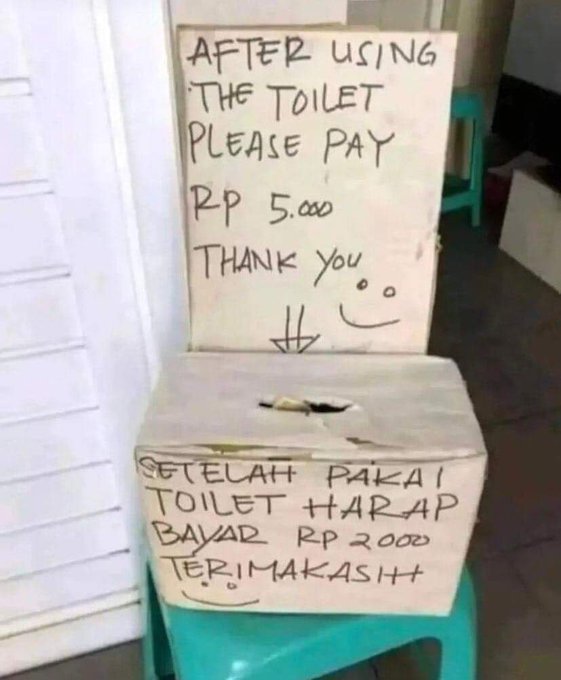 AFTER USING
THE TOILET
PLEASE PAY
RP 5.000
THANK YOU
SETELAH PAKAI
TOILET HARAP
BAYAR RP 2000
TERIMAKASIH